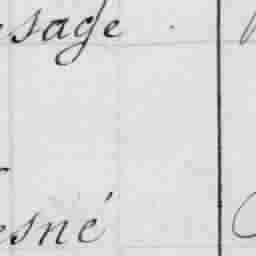 esage
esné